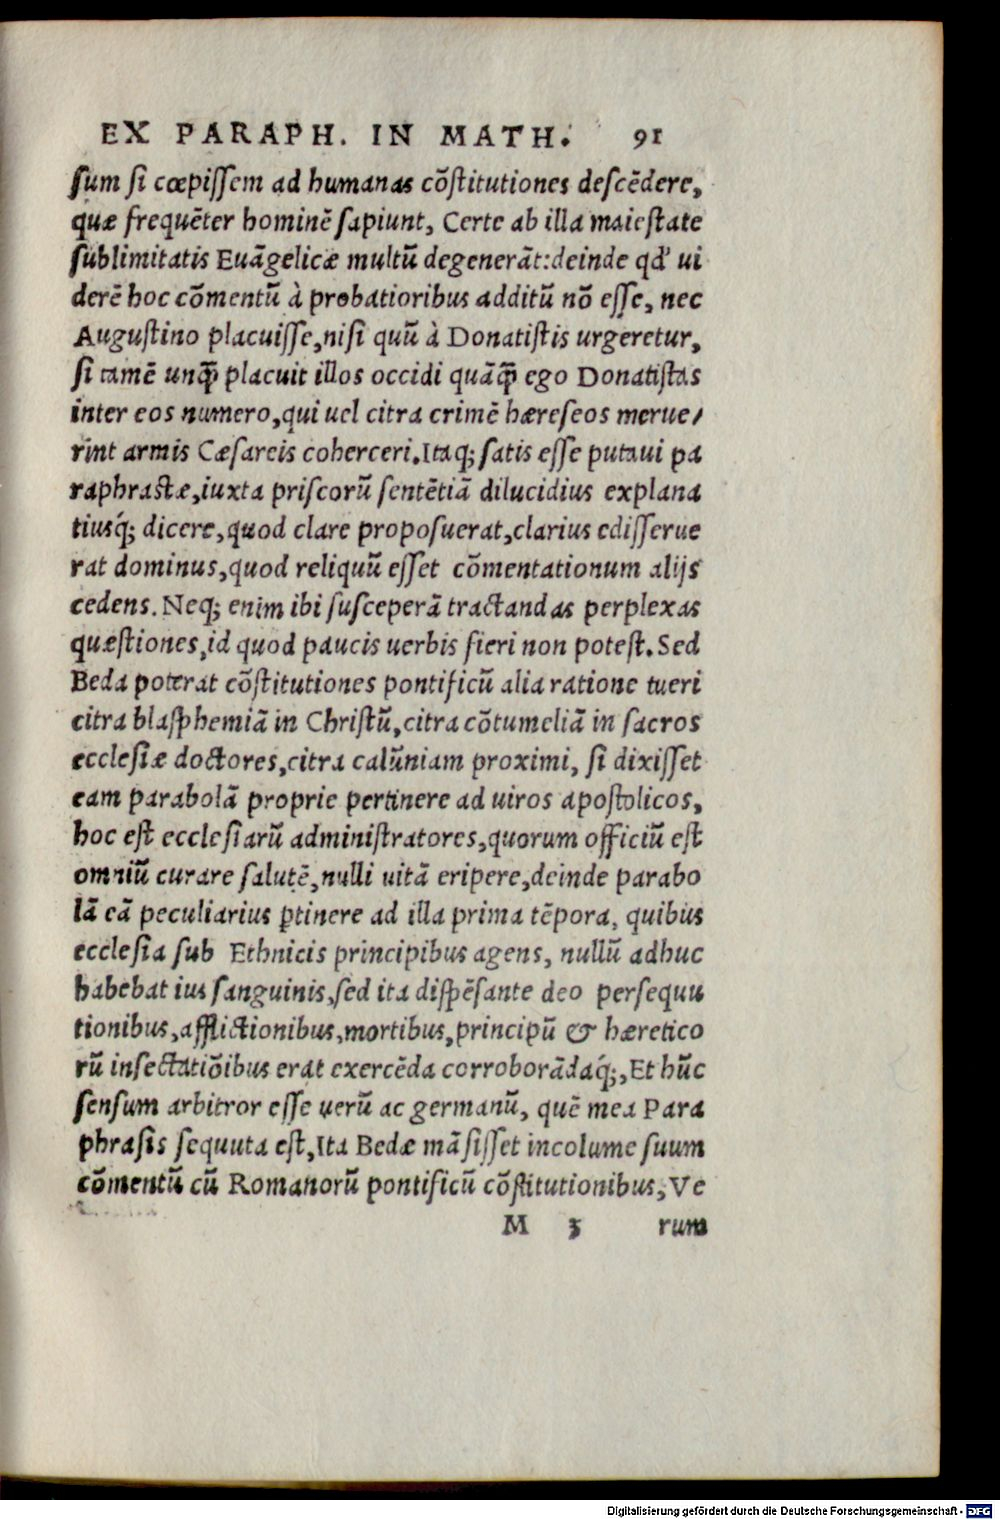 EX PARAPH. IN MATH. 91
sum si cœpissem ad humanas cõstitutiones descēdere,
quæ frequēter hominē sapiunt, Certe ab illa maiestate
sublimitatis Euãgelicæ multũ degenerãt: deinde qd' ui
derē hoc cõmentũ à probatioribus additũ nõ esse, nec
Augustino placuisse, nisi quũ à Donatistis urgeretur,
si tamē unq̃ placuit illos occidi quãq̃ ego Donatistas
inter eos numero, qui uel citra crimē hæreseos merue/
rint armis Cæsareis coherceri. Itaq; satis esse putaui pa
raphrastæ, iuxta priscorũ sentētiã dilucidius explana
tiusq́; dicere, quod clare proposuerat, clarius edisserue
rat dominus, quod reliquũ esset cõmentationum alijs
cedens. Neq; enim ibi susceperã tractandas perplexas
quæstiones, id quod paucis uerbis fieri non potest. Sed
Beda poterat cõstitutiones pontificũ alia ratione tueri
citra blasphemiã in Christũ, citra cõtumeliã in sacros
ecclesiæ doctores, citra calũniam proximi, si dixisset
eam parabolã proprie pertinere ad uiros apostolicos,
hoc est ecclesiarũ administratores, quorum officiũ est
omniũ curare salutē, nulli uitã eripere, deinde parabo
lã eã peculiarius ꝑtinere ad illa prima tēpora, quibus
ecclesia sub Ethnicis principibus agens, nullũ adhuc
habebat ius sanguinis, sed ita dispēsante deo persequu
tionibus, afflictionibus, mortibus, principũ & hæretico
rũ insectatiõibus erat exercēda corroborãdaq́;, Et hũc
sensum arbitror esse uerũ ac germanũ, quē mea Para
phrasis sequuta est, Ita Bedæ mãsisset incolume suum
cõmentũ cũ Romanorũ pontificũ cõstitutionibus, Ve
M 3 rum
Digitalisierung gefördert durch die Deutsche Forschungsgemeinschaft - DFG